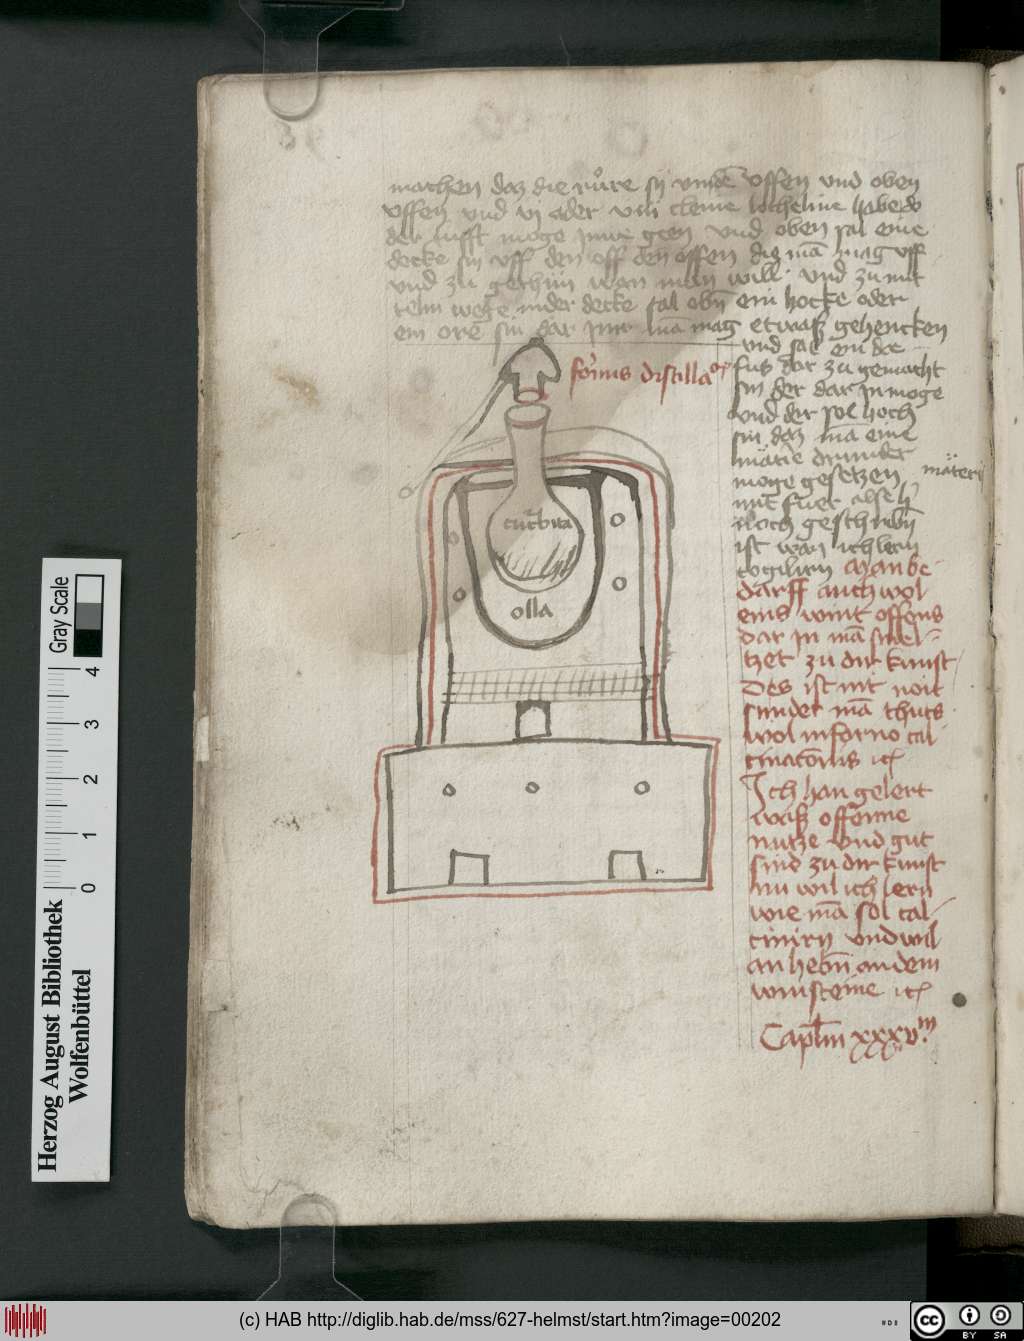 machen daz die růre sij vnde͂ offen vnd oben
offen vnd vj ader viij cleine locheline habe
der lufft moge jnne geen vnd oben sal eine
decke sin vff den off den offen die ma͂ mag vff
vnd zu gethun wan man will vnd zu mit
tem wege in der decke sal ob͂n ein hocke oder
ein ore sin dar jnne ma͂ mag etwaß gehencken
vnd sal ein dor
fornus distilla
fuß dar zu gemacht
sin der dar jn moge
vnd der sol hoch
sin daz ma͂ eine
materie drunder
moge gesetzen materi
mit fuer also
noch geschrib͂n
ist wan ich lern
cogiliern Man be-
darff auch wol
eins wint offens
dar jn ma͂ smel-
tzet zu dir kunst
Des ist nit noit
sunder ma͂ thuts
wol in forno cal
cinaco͂nis
Ich han gelert
waß offenne
nutze vnd gut
sind zu dir kunst
nu wil ich lern
wie ma͂ sol cal-
cinirn vnd wil
an heb͂n an dem
winsteine
Capl͂m xxxvm
curbita
olla
Gray Scale
0 1 2 3 4
Herzog August Bibliothek
Wolfenbüttel
(c) HAB http://diglib.hab.de/mss/627-helmst/start.htm?image=00202
cc BY SA